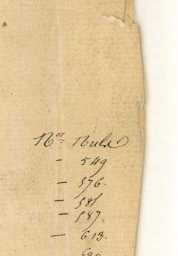 Nos Nuls
— 549
— 576.
— 581
— 587.
— 613.